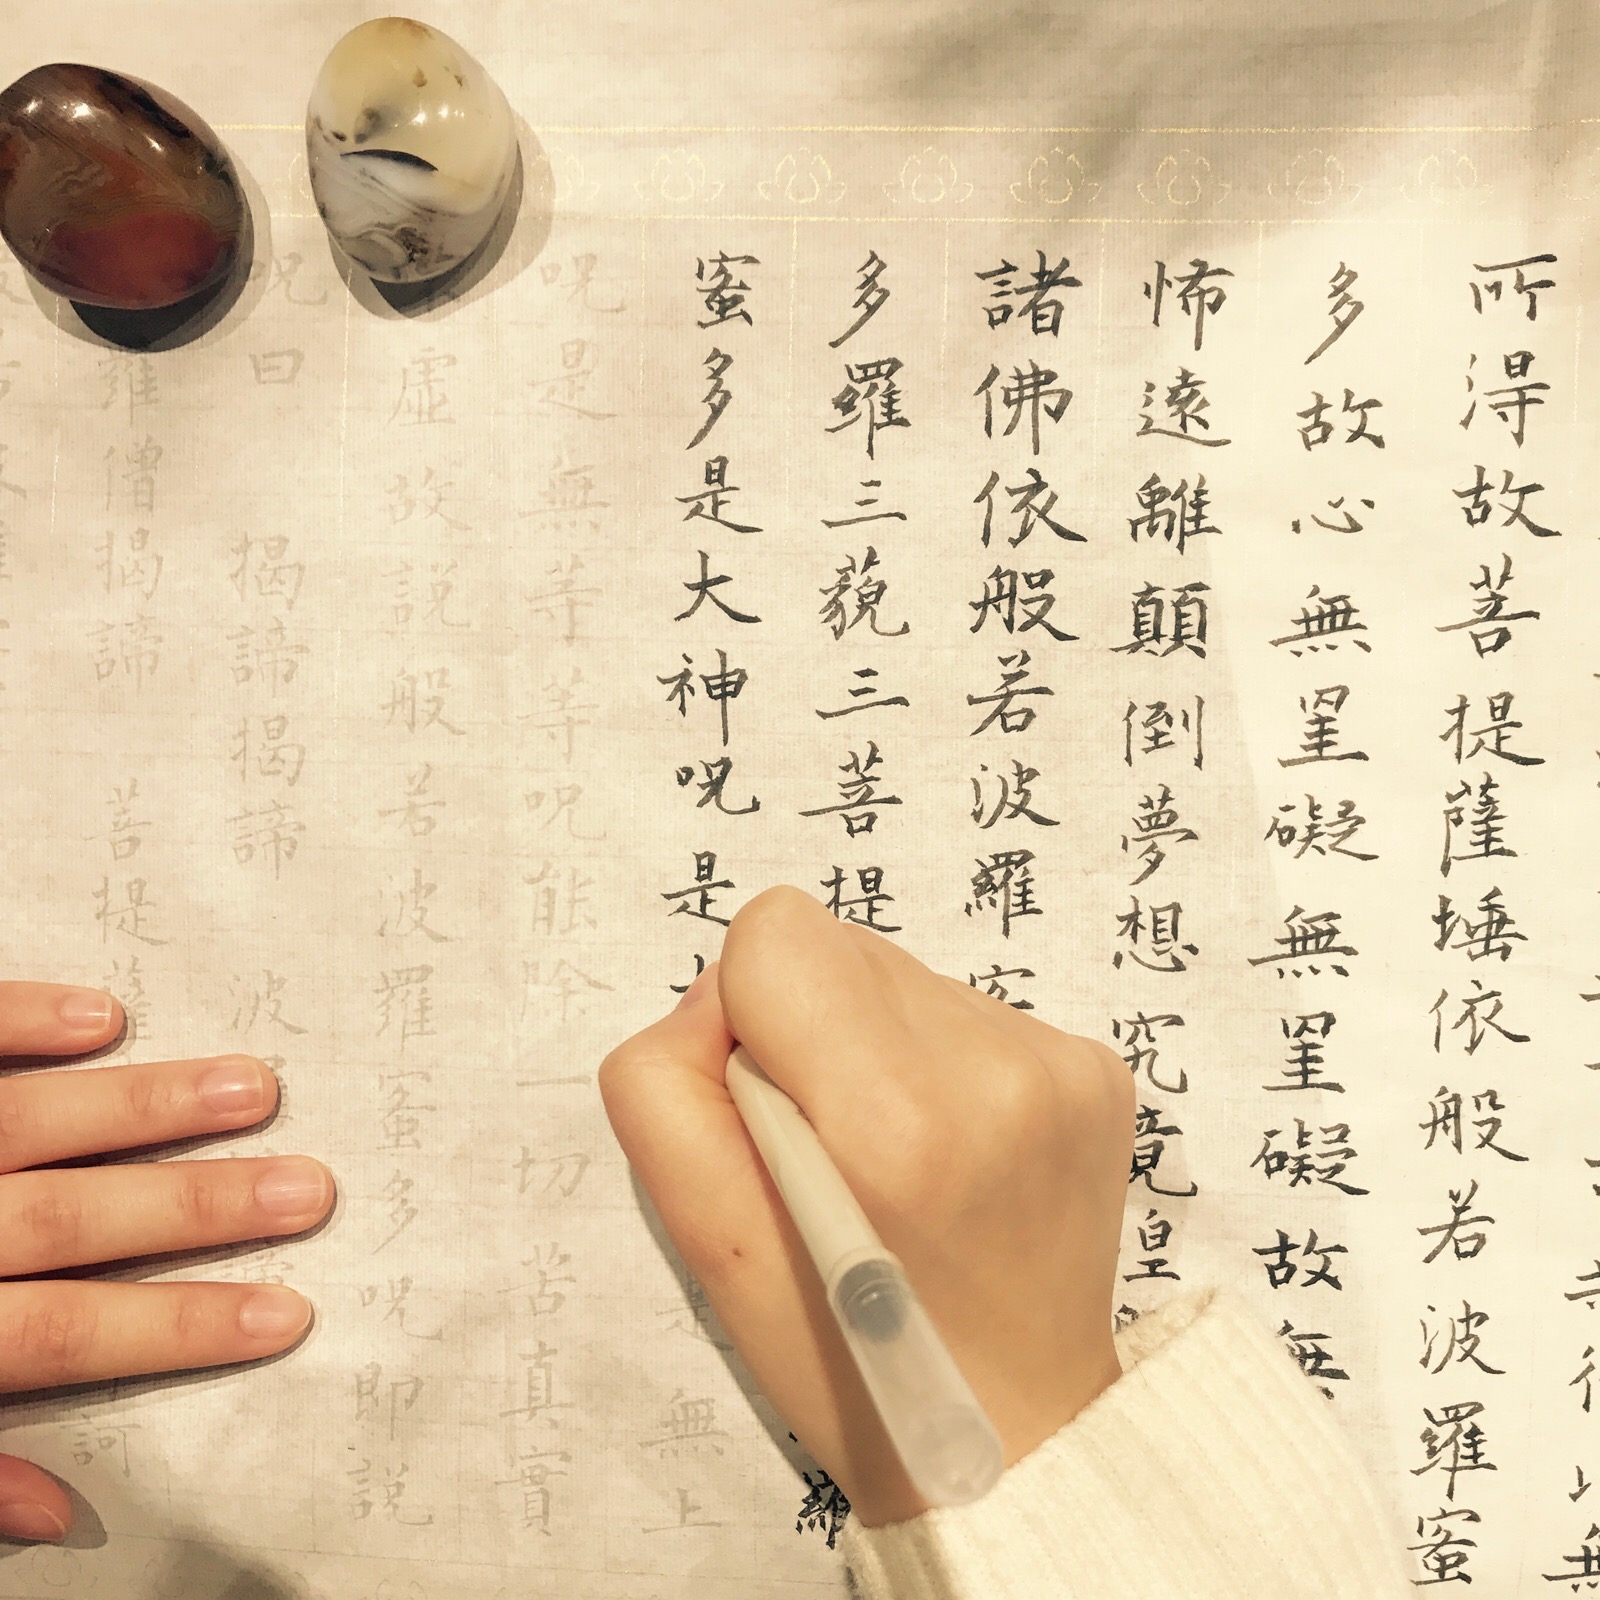 所得故菩提薩埵依般若波羅蜜
多故心無罣礙無罣礙故無
怖遠離顛倒夢想究竟
諸佛依般若波羅
多羅三藐三菩提
蜜多是大神呪是 是無上
呪是無等等呪能除一切苦真實
虛故説般若波羅蜜多呪即説
呪曰 揭諦揭諦 波羅
羅僧揭諦 菩提薩 訶